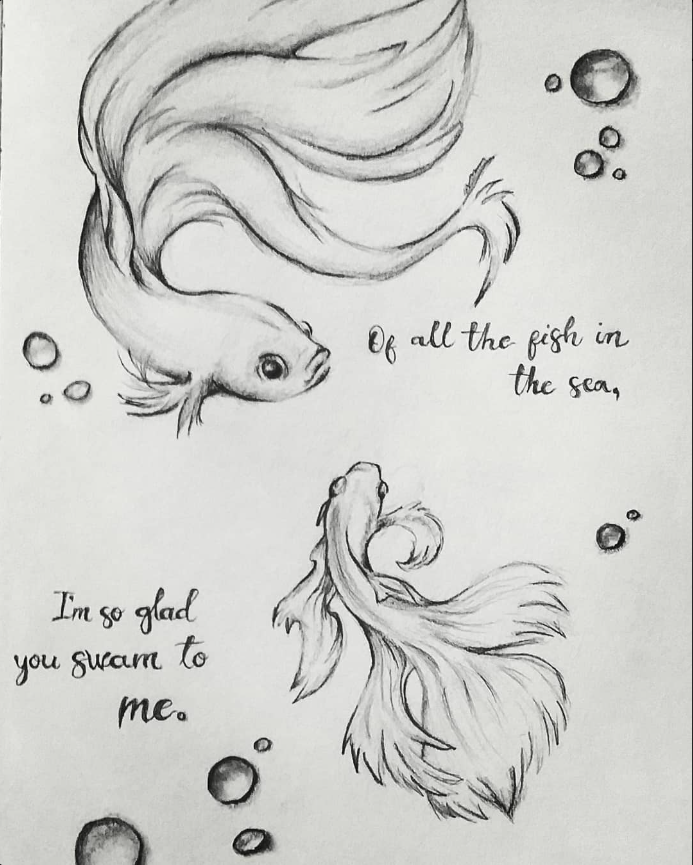 Of all the fish in
the sea,
I'm so glad
you swam to
me.